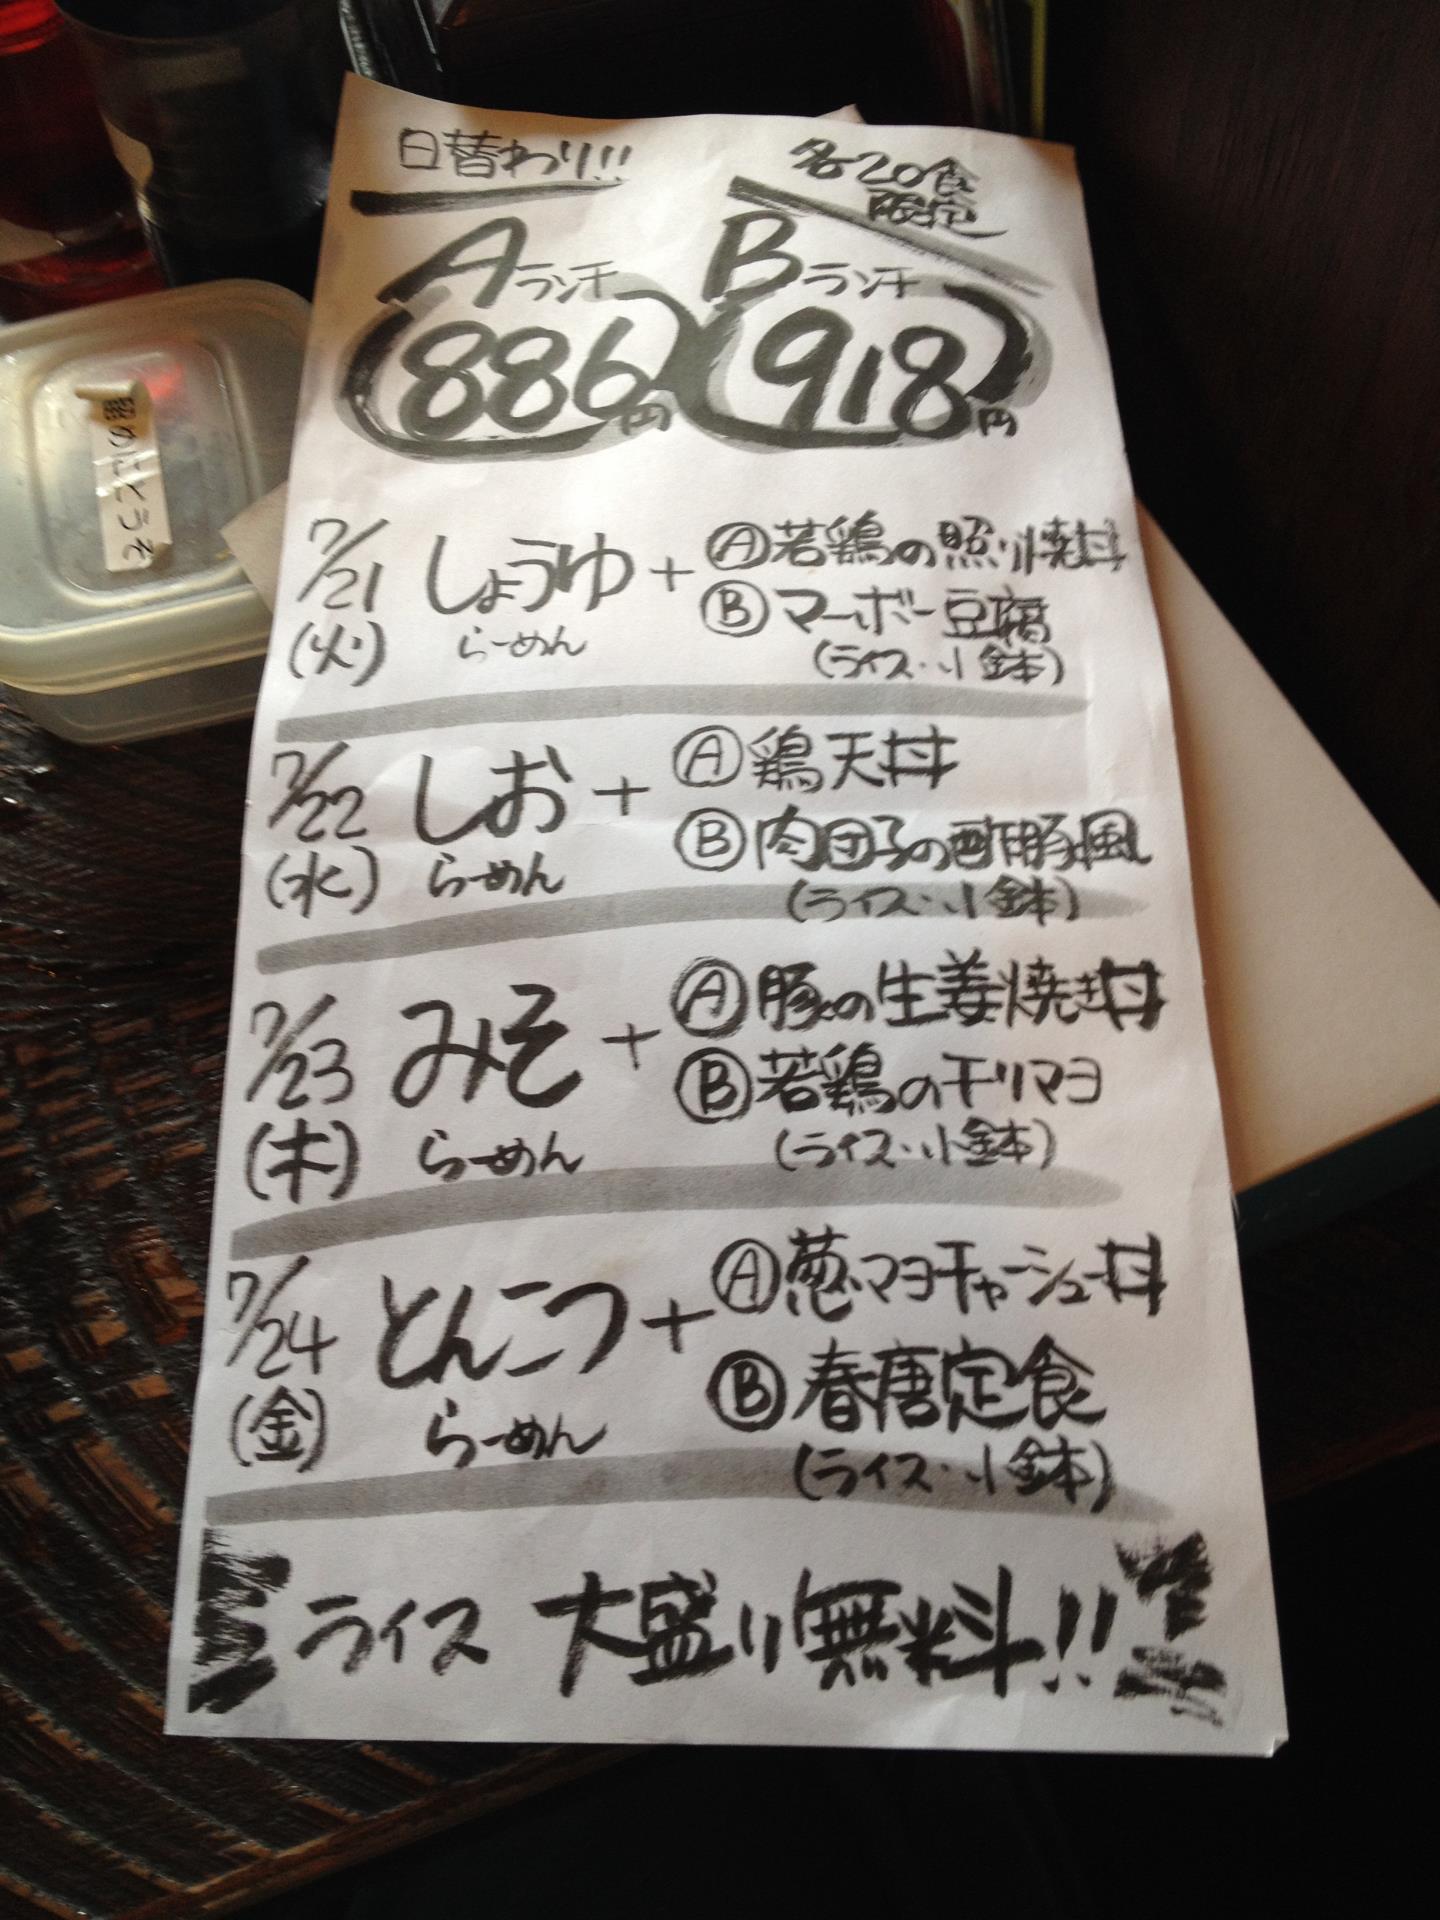 日替わり!!
各20食
限定
Aランチ Bランチ
886円 918円
7/21 しょうゆ + Ⓐ若鶏の照り焼丼
(火) らーめん Ⓑマーボー豆腐
(ライス・小鉢)
7/22 しお + Ⓐ鶏天丼
(水) らーめん Ⓑ肉団子の酢豚風
(ライス・小鉢)
7/23 みそ + Ⓐ豚の生姜焼き丼
(木) らーめん Ⓑ若鶏のチリマヨ
(ライス・小鉢)
7/24 とんこつ + Ⓐ葱マヨチャーシュー丼
(金) らーめん Ⓑ春唐定食
(ライス・小鉢)
ライス 大盛り無料!!